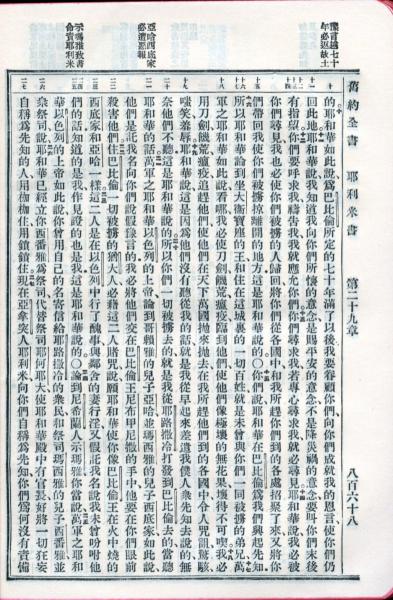 舊約全書　耶利米書　第二十九章　八百六十八
豫言越七十
年必返故土
亞哈西底家
必遭惡報
示瑪雅致書
命責耶利米
的耶和華如此說爲巴比倫所定的七十年滿了以後我要眷顧你們向你們成就我的恩言使你們仍
回此地耶和華說我知道我向你們所懷的意念是賜平安的意念不是降災禍的意念要叫你們末後
有指望你們要呼求我禱告我我就應允你們你們尋求我若專心尋求我就必尋見耶和華說我必被
你們尋見我也必使你們被擄的人歸回將你們從各國中和我所趕你們到的各處招聚了來又將你
們帶回我使你們被擄掠離開的地方這是耶和華說的〇你們說耶和華在巴比倫爲我們興起先知
所以耶和華論到坐大衛寶座的王和住在這城裏的一切百姓就是未曾與你們一同被擄的弟兄萬
軍之耶和華如此說看哪我必使刀劍饑荒瘟疫臨到他們使他們像極壞的無花果壞得不可喫我必
用刀劍饑荒瘟疫追趕他們使他們在天下萬國拋來拋去在我所趕他們到的各國中令人咒詛驚駭
嗤笑羞辱耶和華說這是因爲他們沒有聽從我的話就是我從早起來差遣我僕人衆先知去說的無
奈他們不聽這是耶和華說的所以你們一切被擄去的就是我從耶路撒冷打發到巴比倫去的當聽
耶和華的話萬軍之耶和華以色列的上帝論到哥賴雅的兒子亞哈並瑪西雅的兒子西底家如此說
他們是託我名向你們說假豫言的我必將他們交在巴比倫王尼布甲尼撒的手中他要在你們眼前
殺害他們住巴比倫一切被擄的猶大人必藉這二人賭咒說願耶和華使你像巴比倫王在火中燒的
西底家和亞哈一樣這二人是在以色列中行了醜事與鄰舍的妻行淫又假託我名說我未曾吩咐他
們的話知道的是我作見證的也是我這是耶和華說的〇論到尼希蘭人示瑪雅你當說萬軍之耶和
華以色列的上帝如此說你曾用自己的名寄信給耶路撒冷的衆民和祭司瑪西雅的兒子西番雅並
衆祭司說耶和華已經立你西番雅爲祭司代替祭司耶何耶大使耶和華殿中有官長好將一切狂妄
自稱爲先知的人用枷枷住用鎖鎖住現在亞拿突人耶利米向你們自稱爲先知你們爲何沒有責備